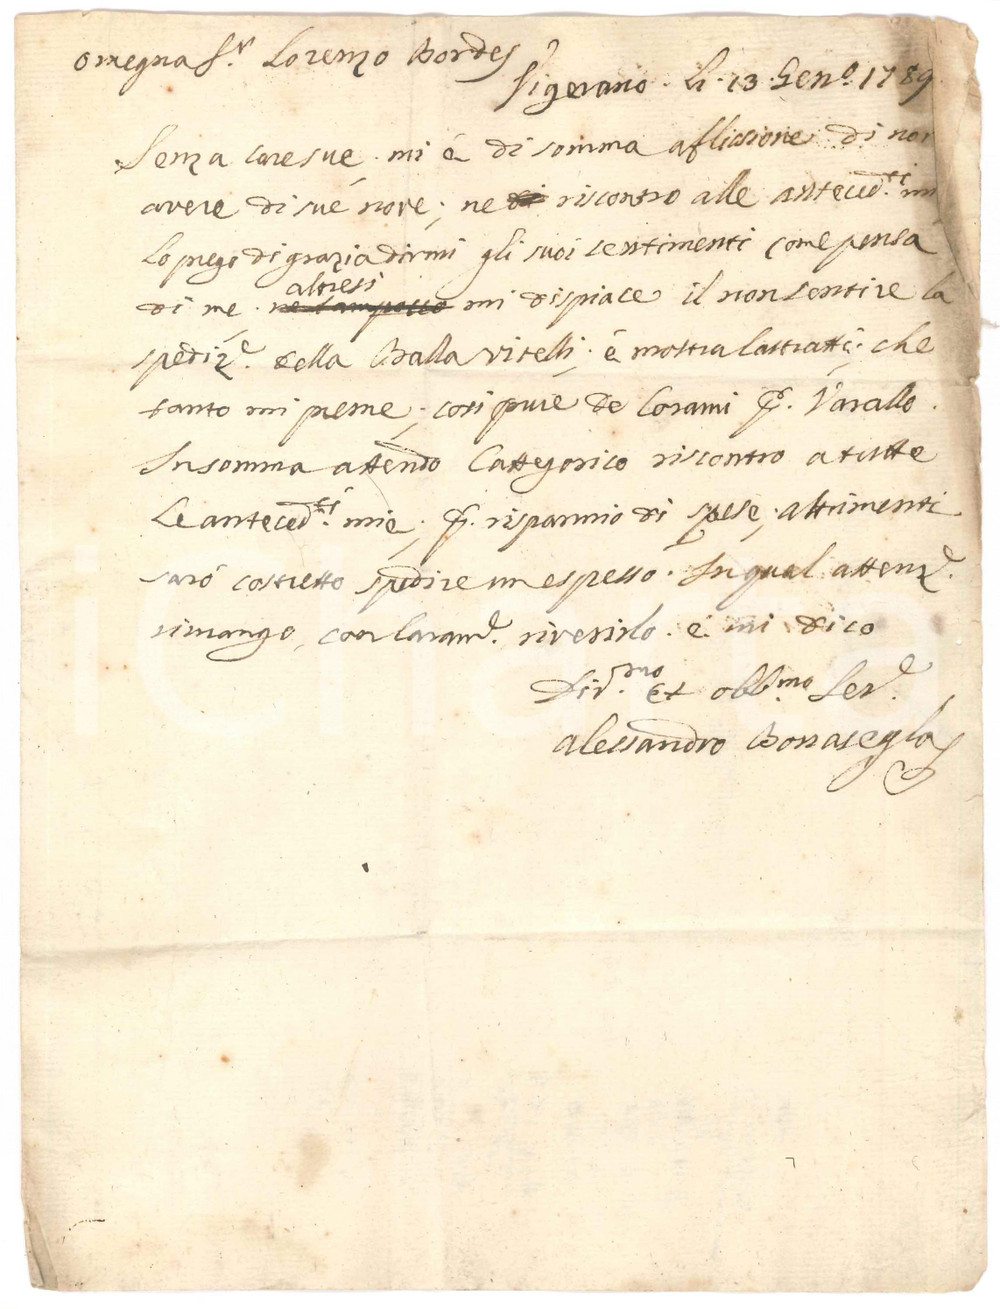 Omegna Sr. Lorenzo Bordes
Vigevano. li. 13. Geno. 1789
Senza care sue. mi é di somma aflissione di non
avere di sue nove; ne riscontro alle anteced.ti mie
Lo prego di grazia dirmi gli suoi sentimenti come pensa
di me. altresi mi dispiace il non sentire la
spediz.e della Balla vitelli; é mostra
che
tanto mi preme; cosi pure de Corami p. Varallo.
Insomma attendo Cattegorico riscontro a tutte
Le anteced.ti mie; p. risparmio di spese; altrimenti
saró costretto spedire un espresso. In qual attenz.e
rimango, con riverirlo. e mi dico
Div.mo et obb.mo Ser.e
Alessandro